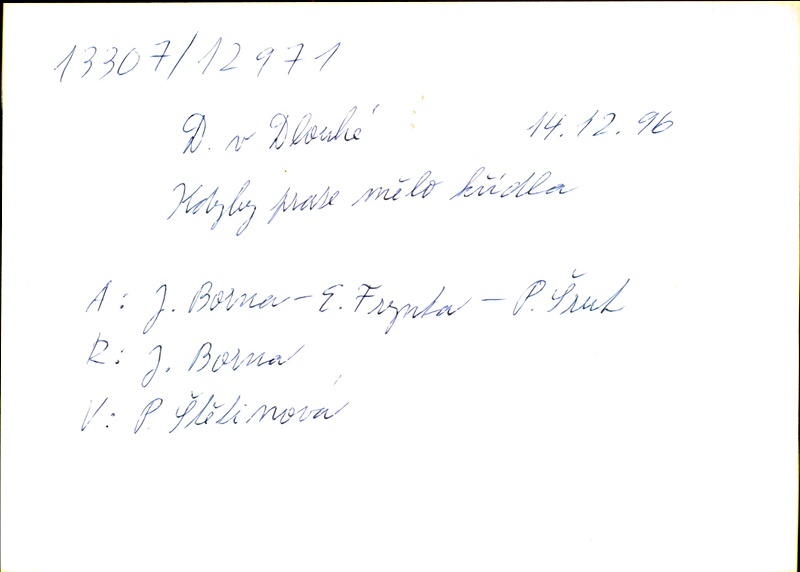 13307/12971
D. v Dlouhé 14.12.96
Kdyby prase mělo křídla
A: J. Borna - E. Frynta - P. Šrut
R: J. Borna
V: P. Štětinová